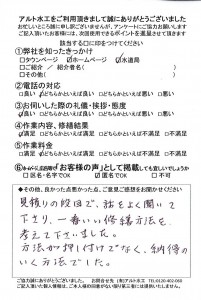 アルト水工をご利用頂きまして誠にありがとうございました
お忙しいところ誠に申し訳ございませんが、アンケートにご協力お願いします
ご記入頂いたお客様には、次回使用できるポイントを進呈させて頂きます
該当する□に印をつけてください
①弊社を知ったきっかけ
□タウンページ ☑ホームページ ☑水道局
□ご紹介 / 紹介者名( )
□その他( )
②電話の対応
☑良い □どちらかといえば良い □どちらかといえば悪い □悪い
③お伺いした際の礼儀・挨拶・態度
☑良い □どちらかといえば良い □どちらかといえば悪い □悪い
④作業内容、修繕結果
☑満足 □どちらかといえば満足 □どちらかといえば不満足 □不満足
⑤作業料金
☑満足 □どちらかといえば満足 □どちらかといえば不満足 □不満足
「お客様の声」として掲載しても宜しいでしょうか
□匿名・名字でOK ☑匿名でOK □不可
◆その他、良かった点悪かった点、ご意見ご感想をお聞かせください
見積りの段階で、話をよく聞いて
下さり、一番いい修繕方法を
考えて下さいました。
方法が押し付けでなく、納得の
いく方法でした。
ご協力誠にありがとうございました。 お問合せ先 (有)アルト水工 TEL0120-402-060